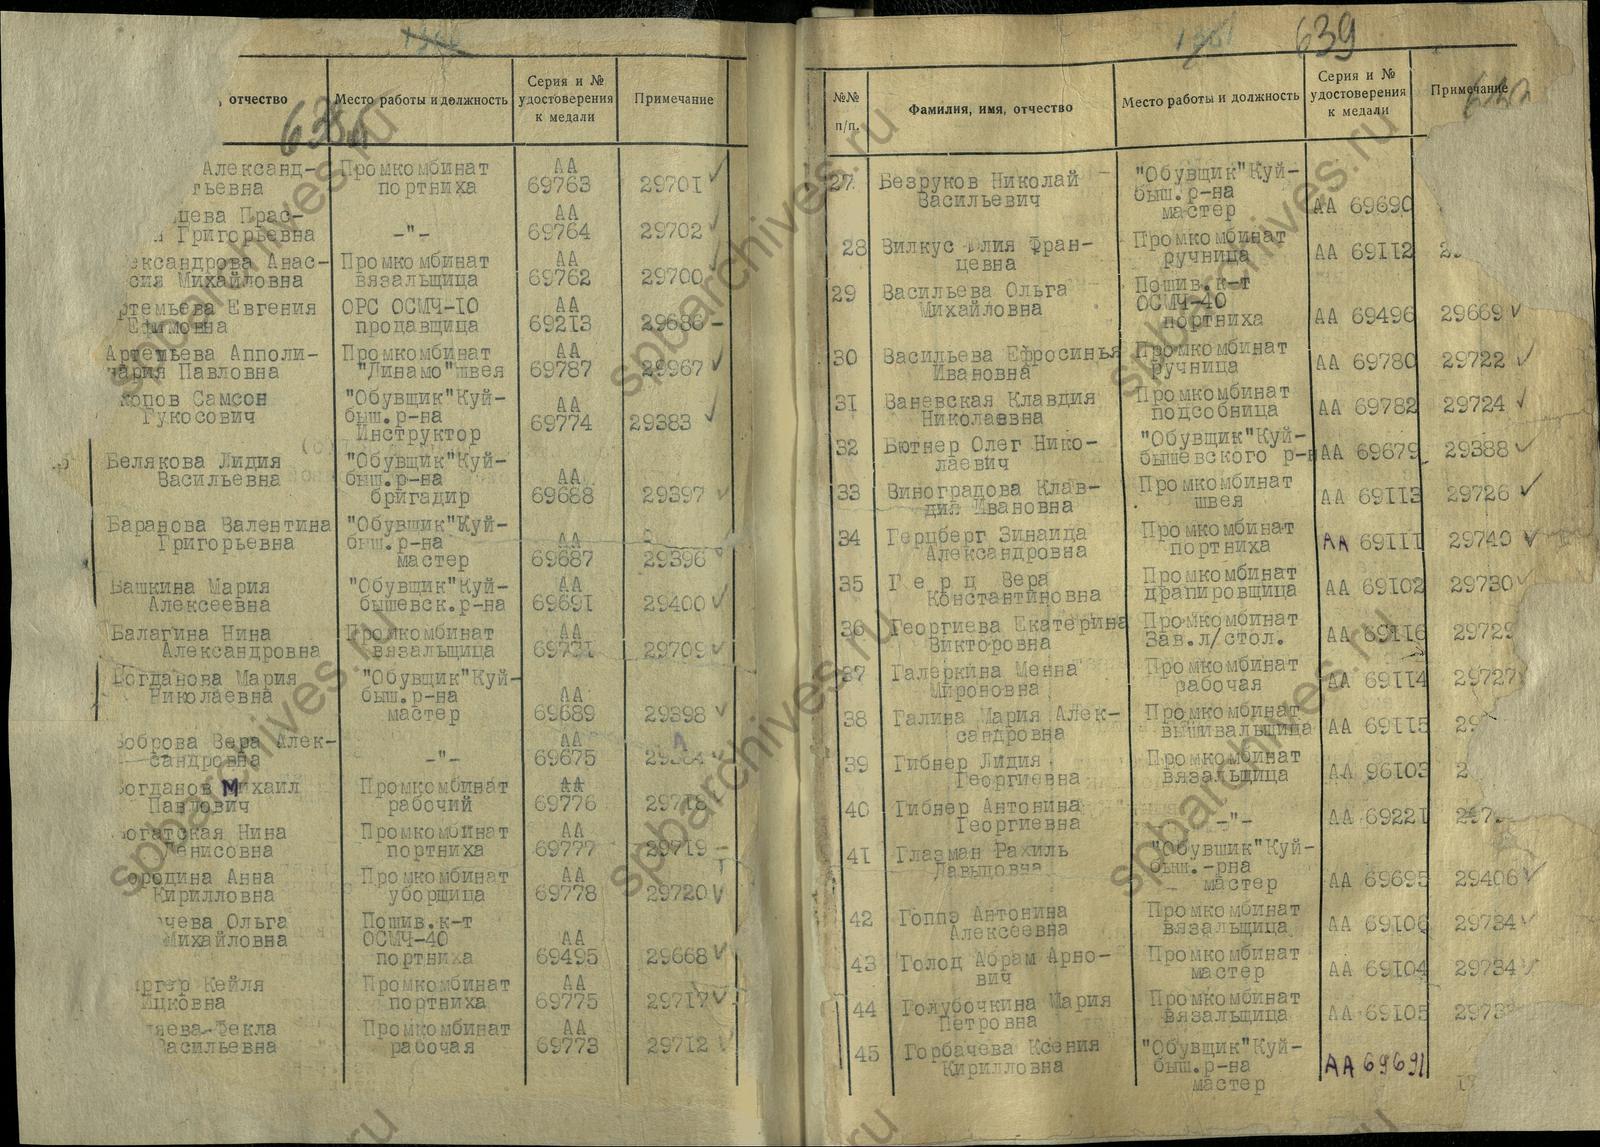 639
отчество
Место работы и должность
Серия и №
удостоверения
к медали
Примечание
Александ-
Промкомбинат
АА
тьевна
портниха
69763
29701
цева Прас-
АА
Григорьевна
-"-
69764
29702
ександрова Анас-
Промкомбинат
АА
сия Михайловна
вязальщица
69762
29700
ртемьева Евгения
ОРС ОСМЧ-10
АА
Ефимовна
продавщица
69213
29686
Артемьева Апполи-
Промкомбинат
АА
нария Павловна
"Динамо" швея
69787
29967
копов Самсон
"Обувщик" Куй-
АА
Гукосович
быш.р-на
69774
29383
Инструктор
Белякова Лидия
"Обувщик" Куй-
Васильевна
быш.р-на
АА
бригадир
69688
29397
Баранова Валентина
"Обувщик" Куй-
Григорьевна
быш.р-на
АА
мастер
69687
29396
Башкина Мария
"Обувщик" Куй-
АА
Алексеевна
бышевск.р-на
69691
29400
Балагина Нина
Промкомбинат
АА
Александровна
вязальщица
69731
29709
Богданова Мария
"Обувщик" Куй-
Николаевна
быш.р-на
АА
мастер
69689
29398
Боброва Вера Алек-
АА
сандровна
-"-
69675
Богданов Михаил
Промкомбинат
АА
Павлович
рабочий
69776
29718
огатская Нина
Промкомбинат
АА
Денисовна
портниха
69777
29719
ородина Анна
Промкомбинат
АА
Кирилловна
уборщица
69778
29720
чева Ольга
Пошив.к-т
Михайловна
ОСМЧ-40
АА
портниха
69495
29668
ргер Кейля
Промкомбинат
АА
Ицковна
портниха
69775
29717
яева Фекла
Промкомбинат
АА
Васильевна
рабочая
69773
29712
№№
п/п.
Фамилия, имя, отчество
Место работы и должность
Серия и №
удостоверения
к медали
Примечание
27
Безруков Николай
"Обувщик" Куй-
Васильевич
быш.р-на
мастер
АА 69690
28
Вилкус Юлия Фран-
Промкомбинат
цевна
ручница
АА 69112
29
Васильева Ольга
Пошив.к-т
Михайловна
ОСМЧ-40
портниха
АА 69496
29669
30
Васильева Ефросинья
Промкомбинат
Ивановна
ручница
АА 69780
29722
31
Ваневская Клавдия
Промкомбинат
Николаевна
подсобница
АА 69782
29724
32
Бютнер Олег Нико-
"Обувщик" Куй-
лаевич
бышевского р-н
АА 69679
29388
33
Виноградова Клав-
Промкомбинат
дия Ивановна
швея
АА 69113
29726
34
Герцберг Зинаида
Промкомбинат
Александровна
портниха
АА 69111
29740
35
Г е р ц Вера
Промкомбинат
Константиновна
драпировщица
АА 69102
29730
36
Георгиева Екатерина
Промкомбинат
Викторовна
Зав.л/стол.
АА 69116
29729
37
Галеркина Менна
Промкомбинат
Мироновна
рабочая
АА 69114
29727
38
Галина Мария Алек-
Промкомбинат
сандровна
вышивальщица
АА 69115
39
Гибнер Лидия
Промкомбинат
Георгиевна
вязальщица
АА 96103
40
Гибнер Антонина
Георгиевна
-"-
АА 69221
41
Глазман Рахиль
"Обувщик" Куй-
Давыдовна
быш.-рна
мастер
АА 69695
29406
42
Гоппэ Антонина
Промкомбинат
Алексеевна
вязальщица
АА 69106
29734
43
Голод Абрам Арно-
Промкомбинат
вич
мастер
АА 69104
29734
44
Голубочкина Мария
Промкомбинат
Петровна
вязальщица
АА 69105
2973
45
Горбачева Ксения
"Обувщик" Куй-
Кирилловна
быш.р-на
АА 69691
мастер
spbarchives.ru